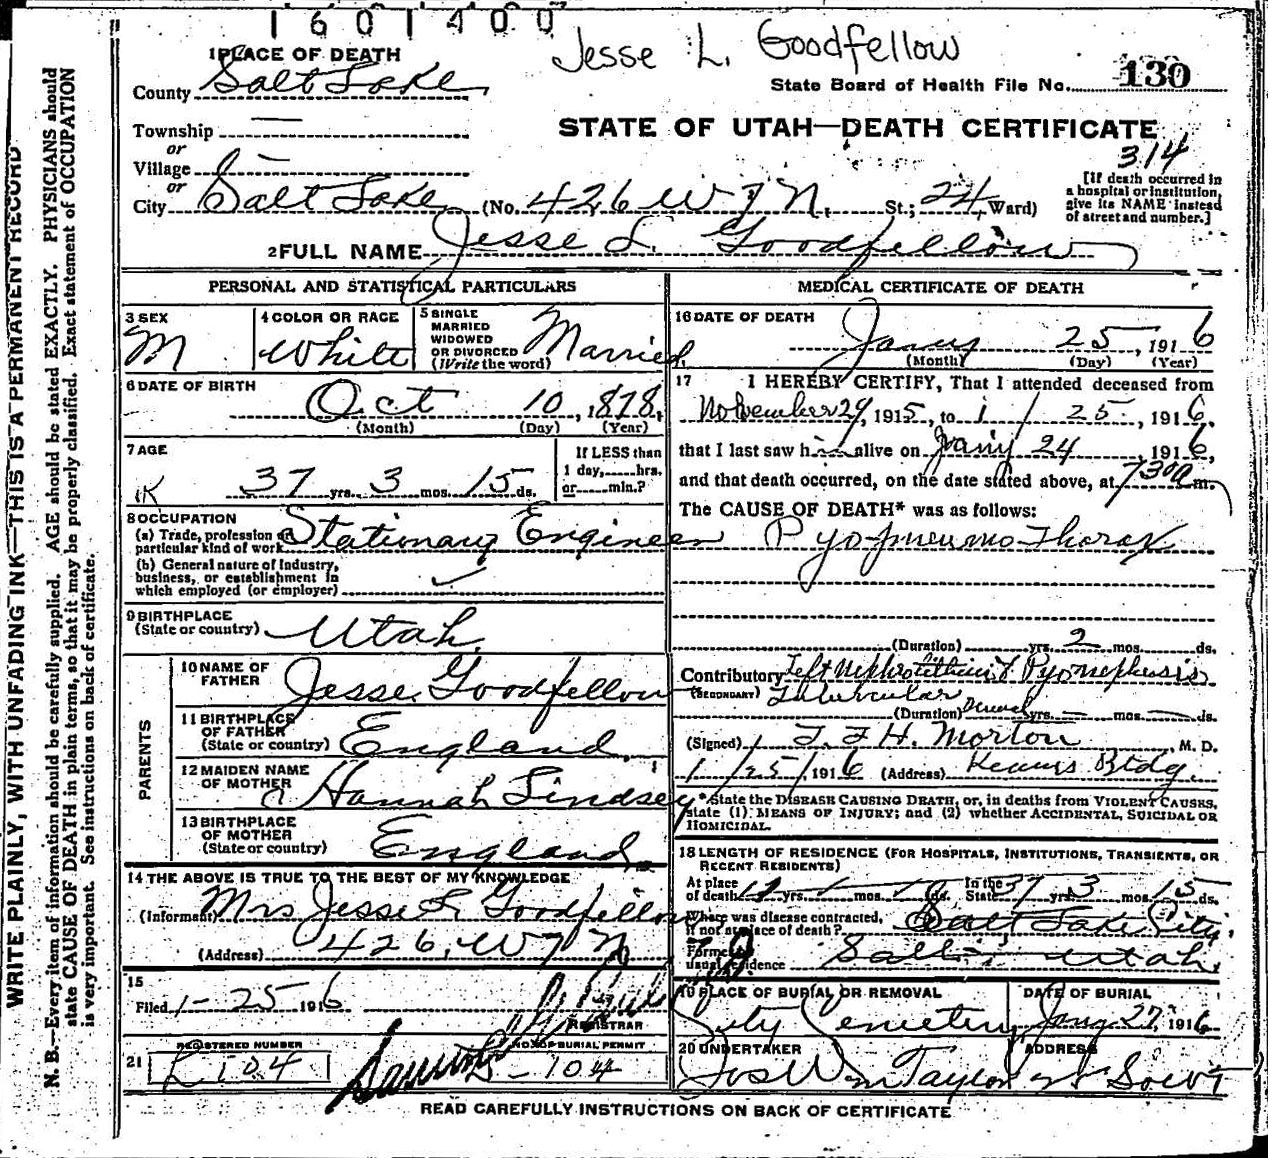 1601400
Jesse L. Goodfellow
1 PLACE OF DEATH
County Salt Lake
State Board of Health File No. 130
Township —
or
Village —
or
City Salt Lake (No. 426 W 7 N. St.; 24 Ward)
STATE OF UTAH—DEATH CERTIFICATE
314
[If death occurred in
a hospital or institution,
give its NAME instead
of street and number.]
2 FULL NAME Jesse L. Goodfellow
PERSONAL AND STATISTICAL PARTICULARS
3 SEX
M
4 COLOR OR RACE
White
5 SINGLE
MARRIED
WIDOWED
OR DIVORCED
(Write the word)
Married
6 DATE OF BIRTH
Oct 10, 1878,
(Month) (Day) (Year)
7 AGE
37 yrs. 3 mos. 15 ds.
If LESS than
1 day,......hrs.
or......min.?
8 OCCUPATION
(a) Trade, profession or
particular kind of work Stationary Engineer
(b) General nature of Industry,
business, or establishment in
which employed (or employer) ✓
9 BIRTHPLACE
(State or country) Utah
PARENTS
10 NAME OF
FATHER Jesse Goodfellow
11 BIRTHPLACE
OF FATHER
(State or country) England
12 MAIDEN NAME
OF MOTHER Hannah Lindsey
13 BIRTHPLACE
OF MOTHER
(State or country) England
14 THE ABOVE IS TRUE TO THE BEST OF MY KNOWLEDGE
(Informant) Mrs Jesse L Goodfellow
(Address) 426 W 7 N
15
Filed 1-25 1916
REGISTRAR
21
REGISTERED NUMBER
L 104
NO. OF BURIAL PERMIT
L-104
MEDICAL CERTIFICATE OF DEATH
16 DATE OF DEATH
Jany 25, 1916
(Month) (Day) (Year)
17 I HEREBY CERTIFY, That I attended deceased from
November 29, 1915, to 1/25, 1916,
that I last saw him alive on Jany 24, 1916,
and that death occurred, on the date stated above, at 7 30 a m.
The CAUSE OF DEATH* was as follows:
Pyo-pneumo-Thorax
(Duration) yrs. 2 mos. ds.
Contributory Left Nephrolithiasis & Pyonephrosis
(SECONDARY) Tubercular
(Duration) Several yrs. — mos. — ds.
(Signed) T. F. H. Morton, M. D.
1/25/1916 (Address) Kearns Bldg.
*State the DISEASE CAUSING DEATH, or, in deaths from VIOLENT CAUSES,
state (1) MEANS OF INJURY; and (2) whether ACCIDENTAL, SUICIDAL OR
HOMICIDAL.
18 LENGTH OF RESIDENCE (FOR HOSPITALS, INSTITUTIONS, TRANSIENTS, OR
RECENT RESIDENTS)
At place
of death yrs. mos. ds. In the
State 37 yrs. 3 mos. 15 ds.
Where was disease contracted,
if not at place of death? Salt Lake City.
Former or
usual residence Salt Utah.
19 PLACE OF BURIAL OR REMOVAL
City Cemetery
DATE OF BURIAL
Jany 27, 1916
20 UNDERTAKER
Jos Wm Taylor
ADDRESS
READ CAREFULLY INSTRUCTIONS ON BACK OF CERTIFICATE
WRITE PLAINLY, WITH UNFADING INK—THIS IS A PERMANENT RECORD
N. B.—Every item of information should be carefully supplied. AGE should be stated EXACTLY. PHYSICIANS should
state CAUSE OF DEATH in plain terms, so that it may be properly classified. Exact statement of OCCUPATION
is very important. See instructions on back of certificate.